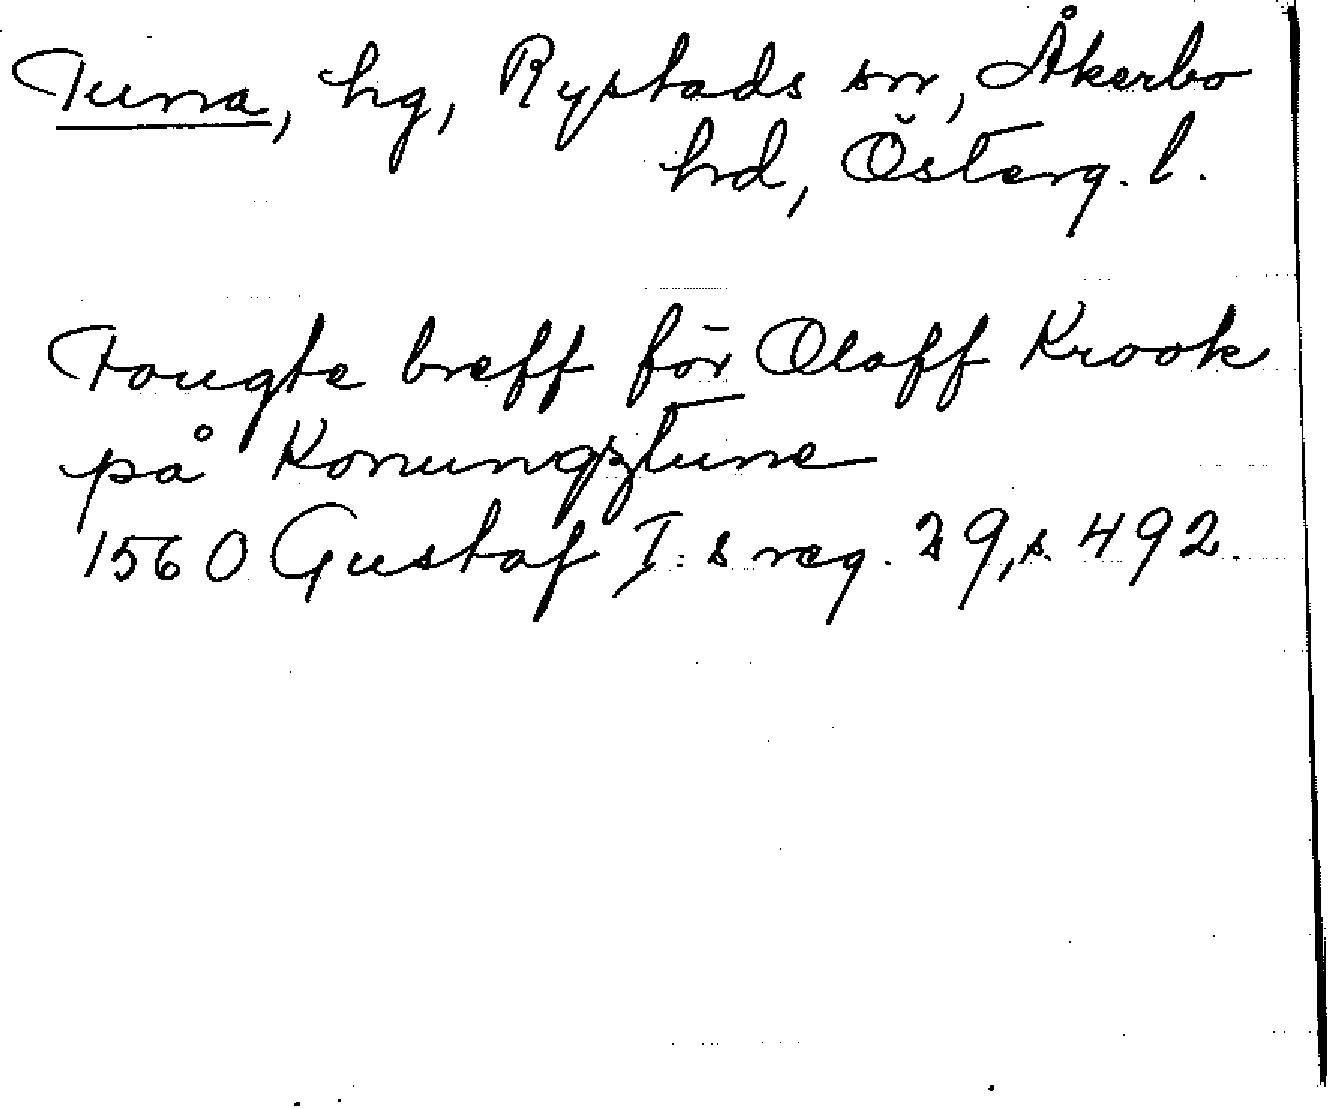 Tuna, hg, Rystads sn, Åkerbo
hd, Österg. l.
Fougte breff för Oloff Krook
på Konungztune
1560 Gustaf I:s reg. 29, s. 492.